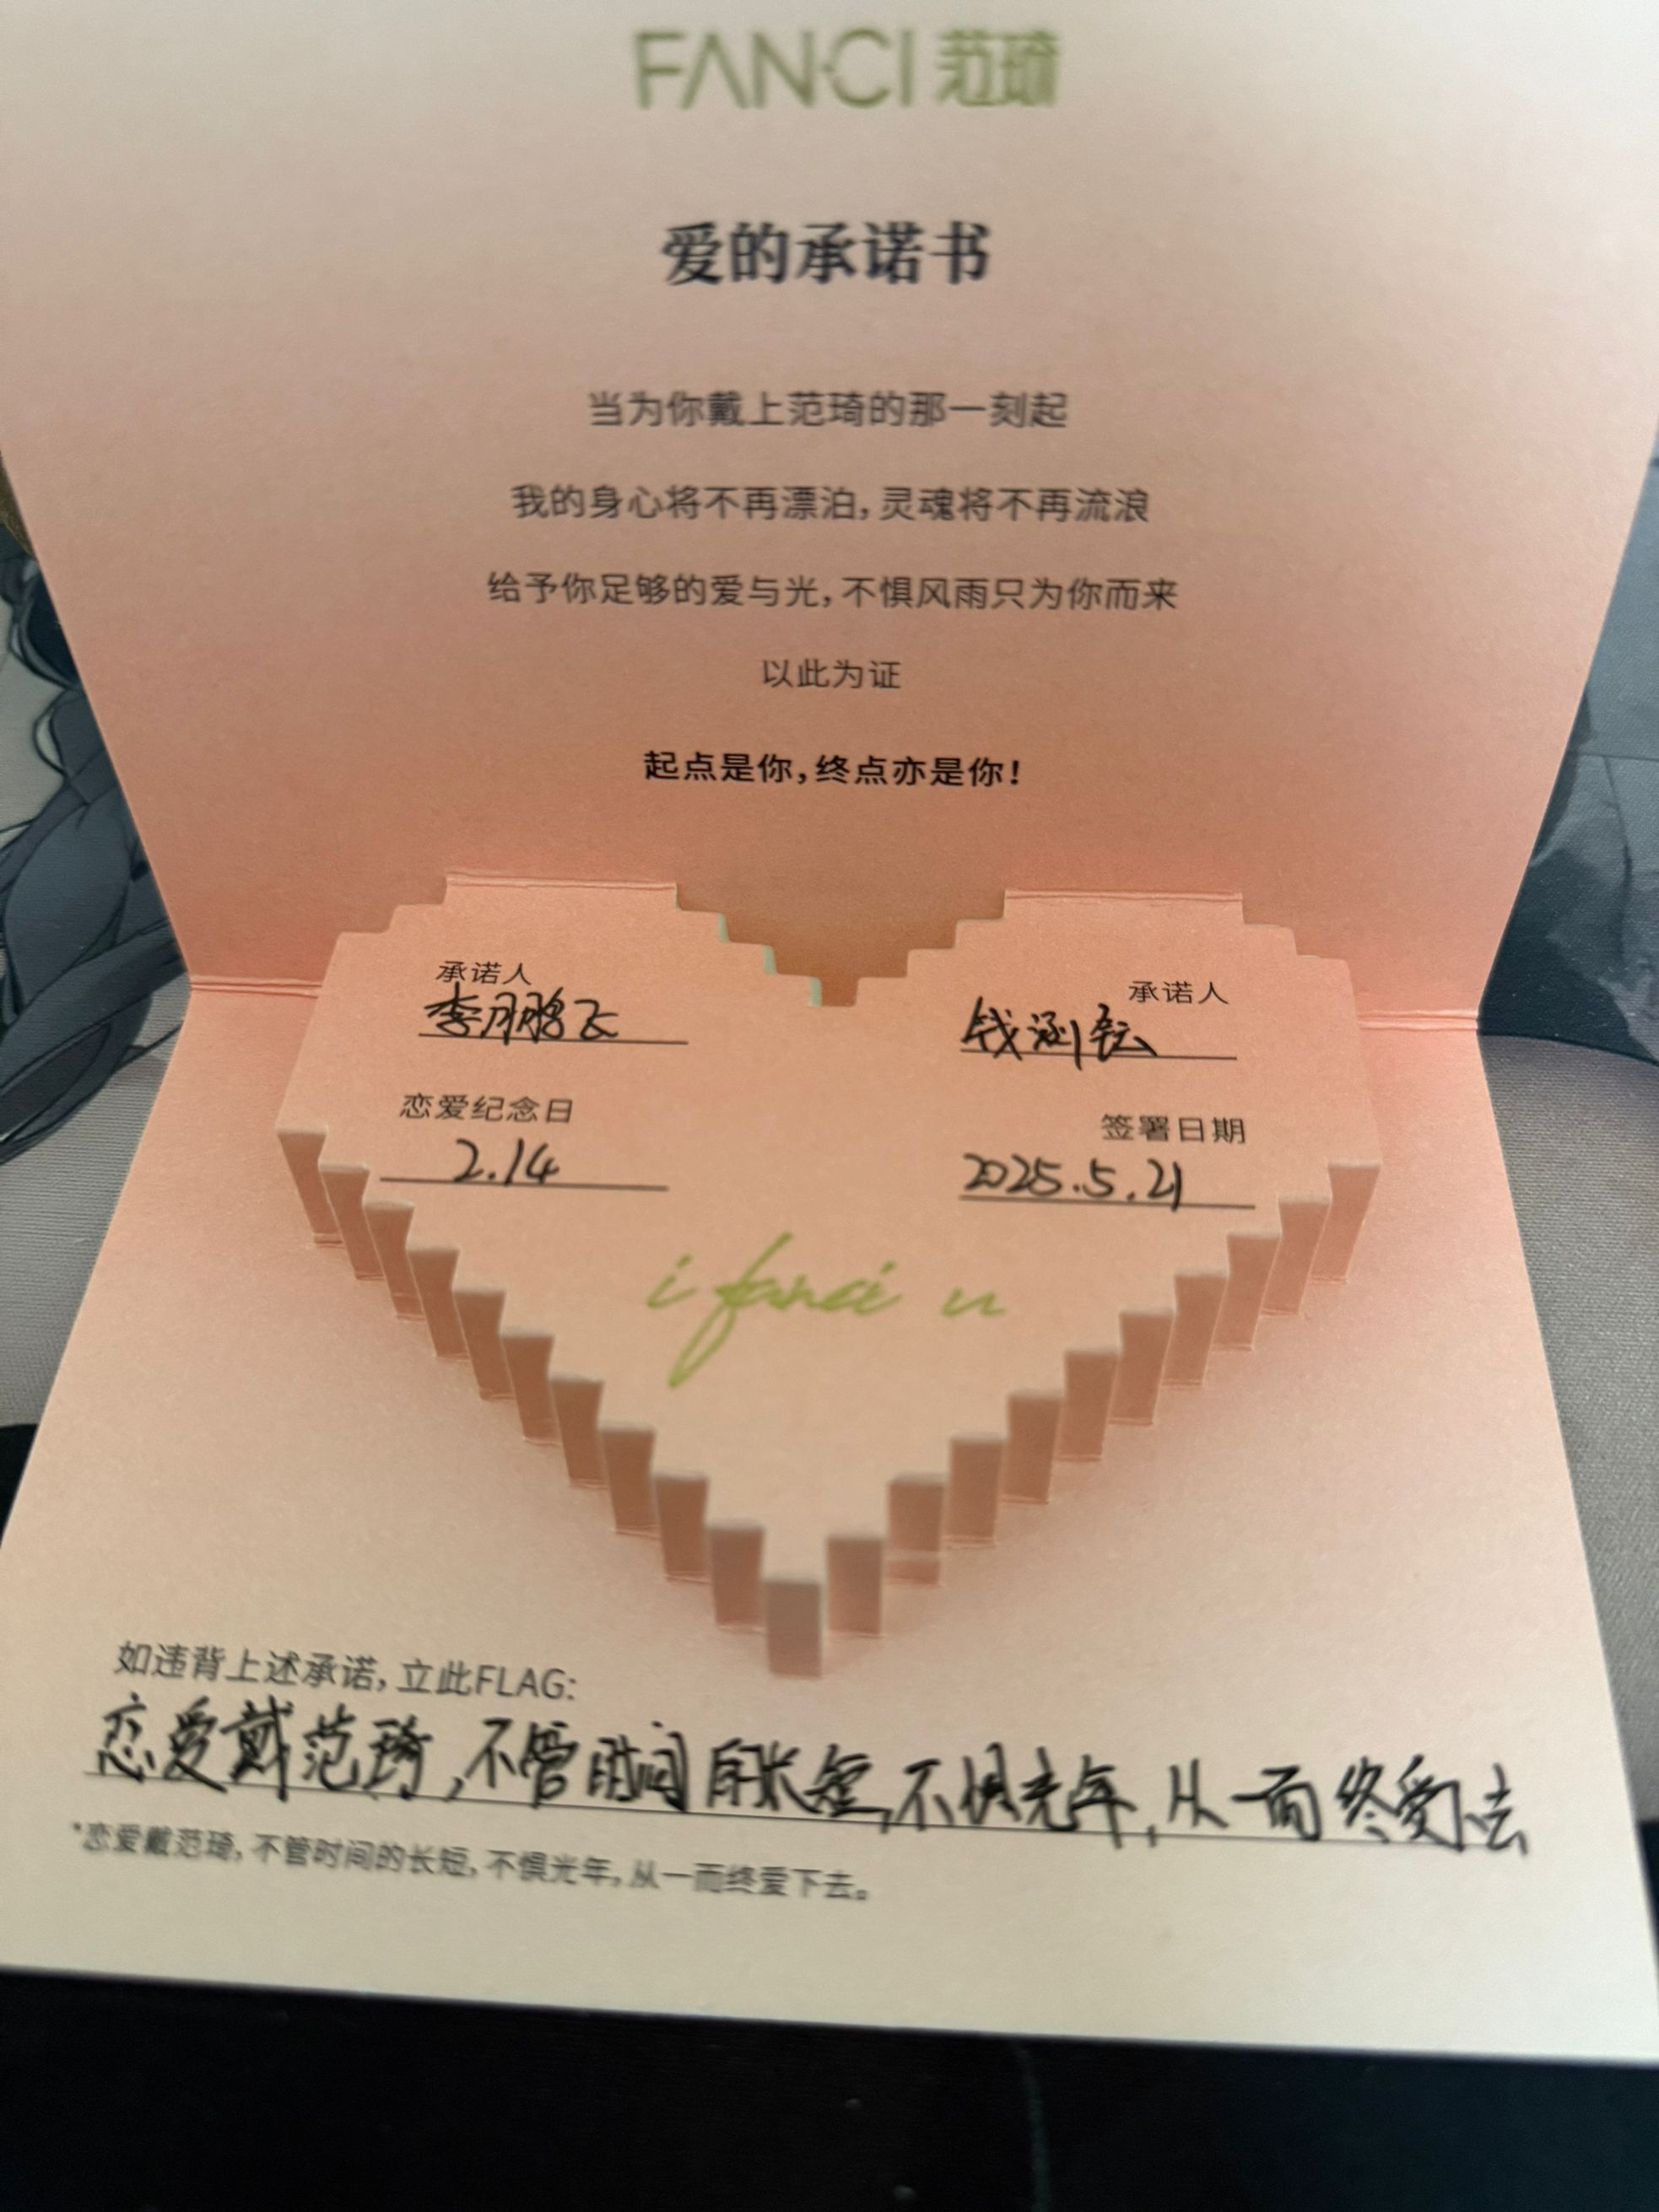 FANCI 范琦
爱的承诺书
当为你戴上范琦的那一刻起
我的身心将不再漂泊,灵魂将不再流浪
给予你足够的爱与光,不惧风雨只为你而来
以此为证
起点是你,终点亦是你!
承诺人
李鹏飞
承诺人
钱
恋爱纪念日
2.14
签署日期
2025.5.21
i fanci u
如违背上述承诺,立此FLAG:
恋爱戴范琦,不管时间的长短,不惧光年,从一而终爱下去
*恋爱戴范琦,不管时间的长短,不惧光年,从一而终爱下去。